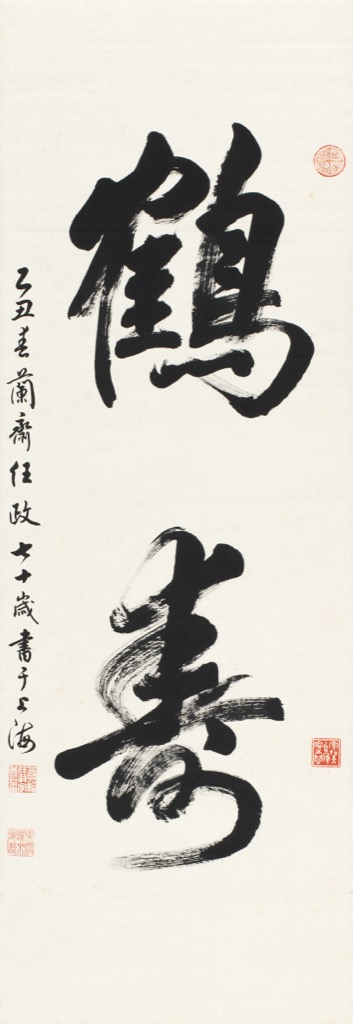 鶴
寿
乙丑春蘭齋任政七十歲書于上海